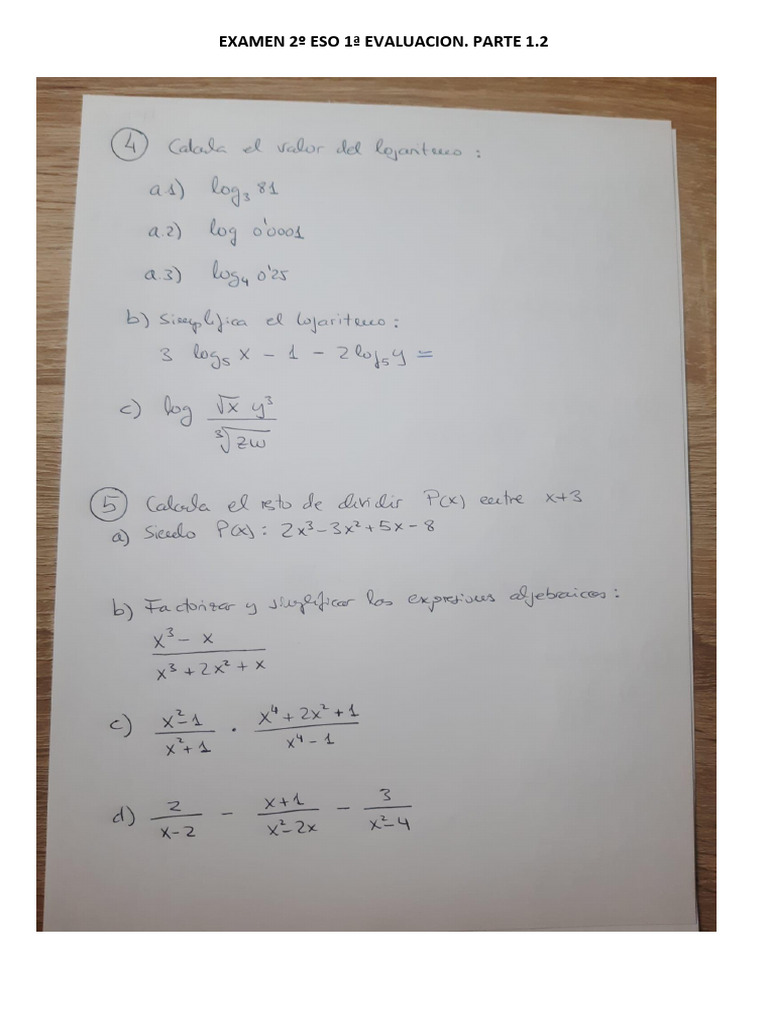 EXAMEN 2º ESO 1ª EVALUACION. PARTE 1.2
4 Calcula el valor del logaritmo :
a.1) log₃ 81
a.2) log 0'0001
a.3) log₄ 0'25
b) Simplifica el logaritmo :
3 log₅ x - 1 - 2 log₅ y =
c) log (√x y³)/(∛(zw))
5 Calcula el resto de dividir P(x) entre x+3
a) Siendo P(x) : 2x³ - 3x² + 5x - 8
b) Factorizar y simplificar las expresiones algebraicas :
(x³ - x)/(x³ + 2x² + x)
c) (x² - 1)/(x² + 1) · (x⁴ + 2x² + 1)/(x⁴ - 1)
d) 2/(x - 2) - (x + 1)/(x² - 2x) - 3/(x² - 4)